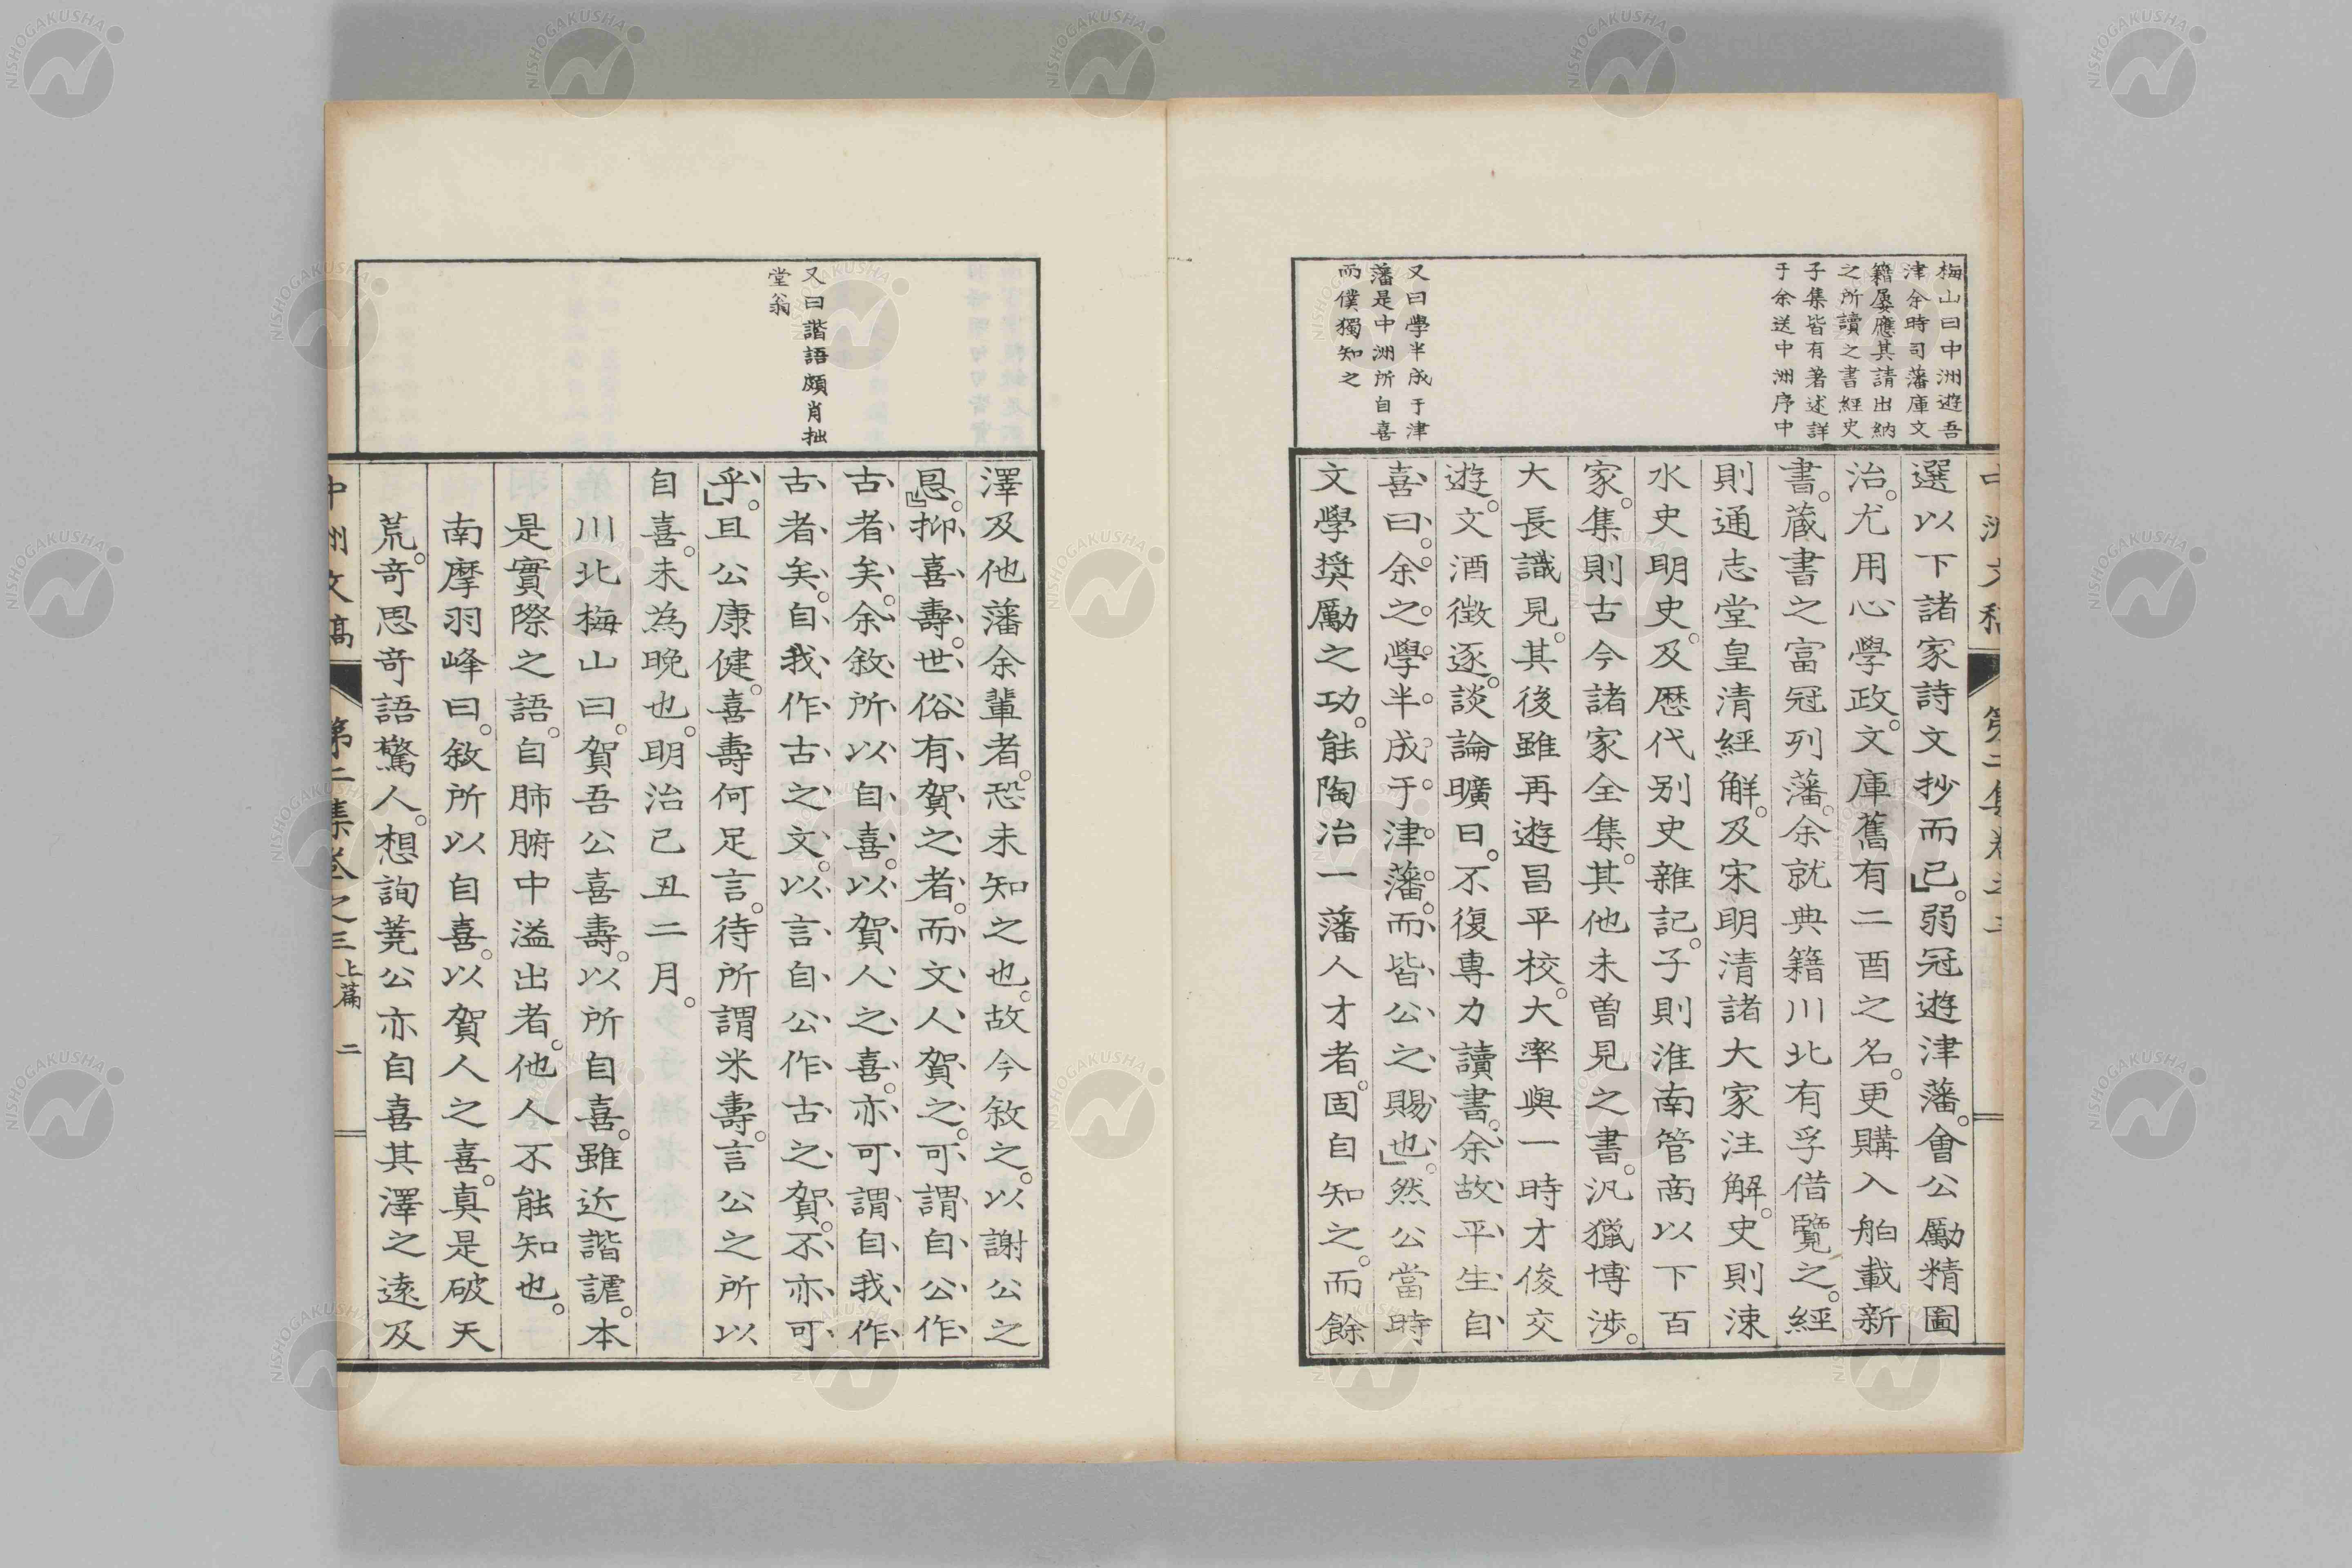 梅山曰中洲遊吾
津余時司藩庫文
籍屢應其請出納
之所讀之書經史
子集皆有著述詳
于余送中洲序中
又曰學半成于津
藩是中洲所自喜
而僕獨知之
選以下諸家詩文抄而已。弱冠遊津藩。會公勵精圖
治。尤用心學政。文庫舊有二酉之名。更購入舶載新
書。藏書之富冠列藩。余就典籍川北有孚借覽之。經
則通志堂皇清經解。及宋明清諸大家注解。史則涑
水史明史。及歷代別史雜記。子則淮南管商以下百
家。集則古今諸家全集。其他未曾見之書。汎獵博涉。
大長識見。其後雖再遊昌平校。大率與一時才俊交
遊。文酒徵逐。談論曠日。不復專力讀書。余故平生自
喜曰。余之學半成于津藩。而皆公之賜也。然公當時
文學奬勵之功。能陶冶一藩人才者。固自知之。而餘
又曰諧語頗肖拙
堂翁
澤及他藩余輩者。恐未知之也。故今敘之。以謝公之
恩。抑喜壽。世俗有賀之者。而文人賀之。可謂自公作
古者矣。余敘所以自喜。以賀人之喜。亦可謂自我作
古者矣。自我作古之文。以言自公作古之賀。不亦可
乎。且公康健。喜壽何足言。待所謂米壽。言公之所以
自喜。未為晚也。明治己丑二月。
川北梅山曰。賀吾公喜壽。以所自喜。雖近諧謔。本
是實際之語。自肺腑中溢出者。他人不能知也。
南摩羽峰曰。敘所以自喜。以賀人之喜。真是破天
荒。奇思奇語驚人。想詢蕘公亦自喜其澤之遠及
中洲文稿 第二集卷之三 上篇 二